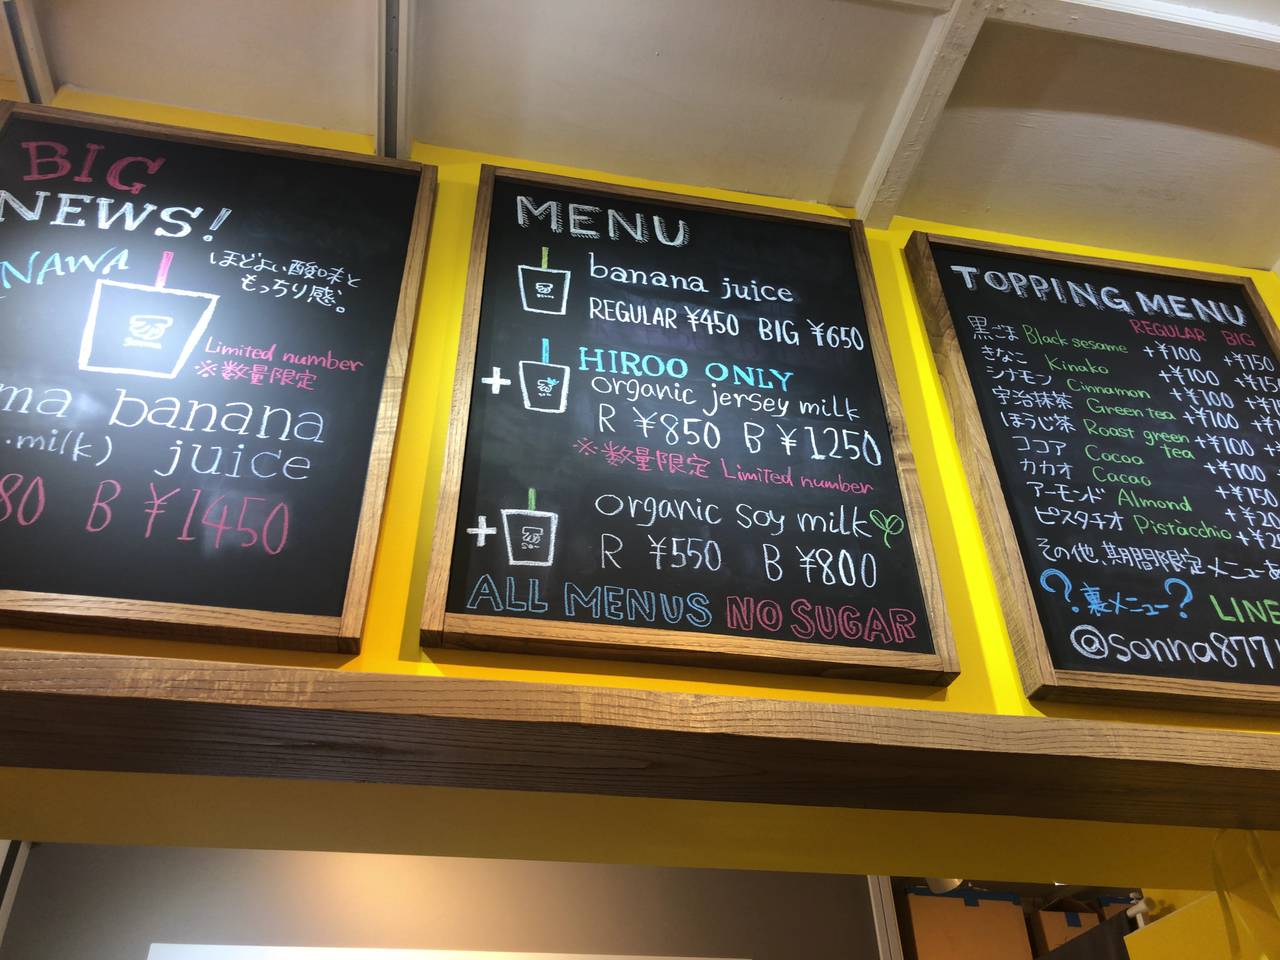 BIG
NEWS!
NAWA
ほどよい酸味と
もっちり感。
Limited number
※数量限定
banana
milk) juice
80 B ¥1450
MENU
banana juice
REGULAR ¥450 BIG ¥650
+ HIROO ONLY
organic jersey milk
R ¥850 B ¥1250
※数量限定 Limited number
+ organic soy milk
R ¥550 B ¥800
ALL MENUS NO SUGAR
TOPPING MENU
REGULAR BIG
黒ごま Black sesame +¥100 +¥150
きなこ Kinako +¥100
シナモン Cinnamon +¥100
宇治抹茶 Green tea +¥100
ほうじ茶 Roast green tea +¥100
ココア Cocoa +¥100
カカオ Cacao +¥150
アーモンド Almond
ピスタチオ Pistàcchio
その他、期間限定メニュー
?裏メニュー? LINE
@sonna877